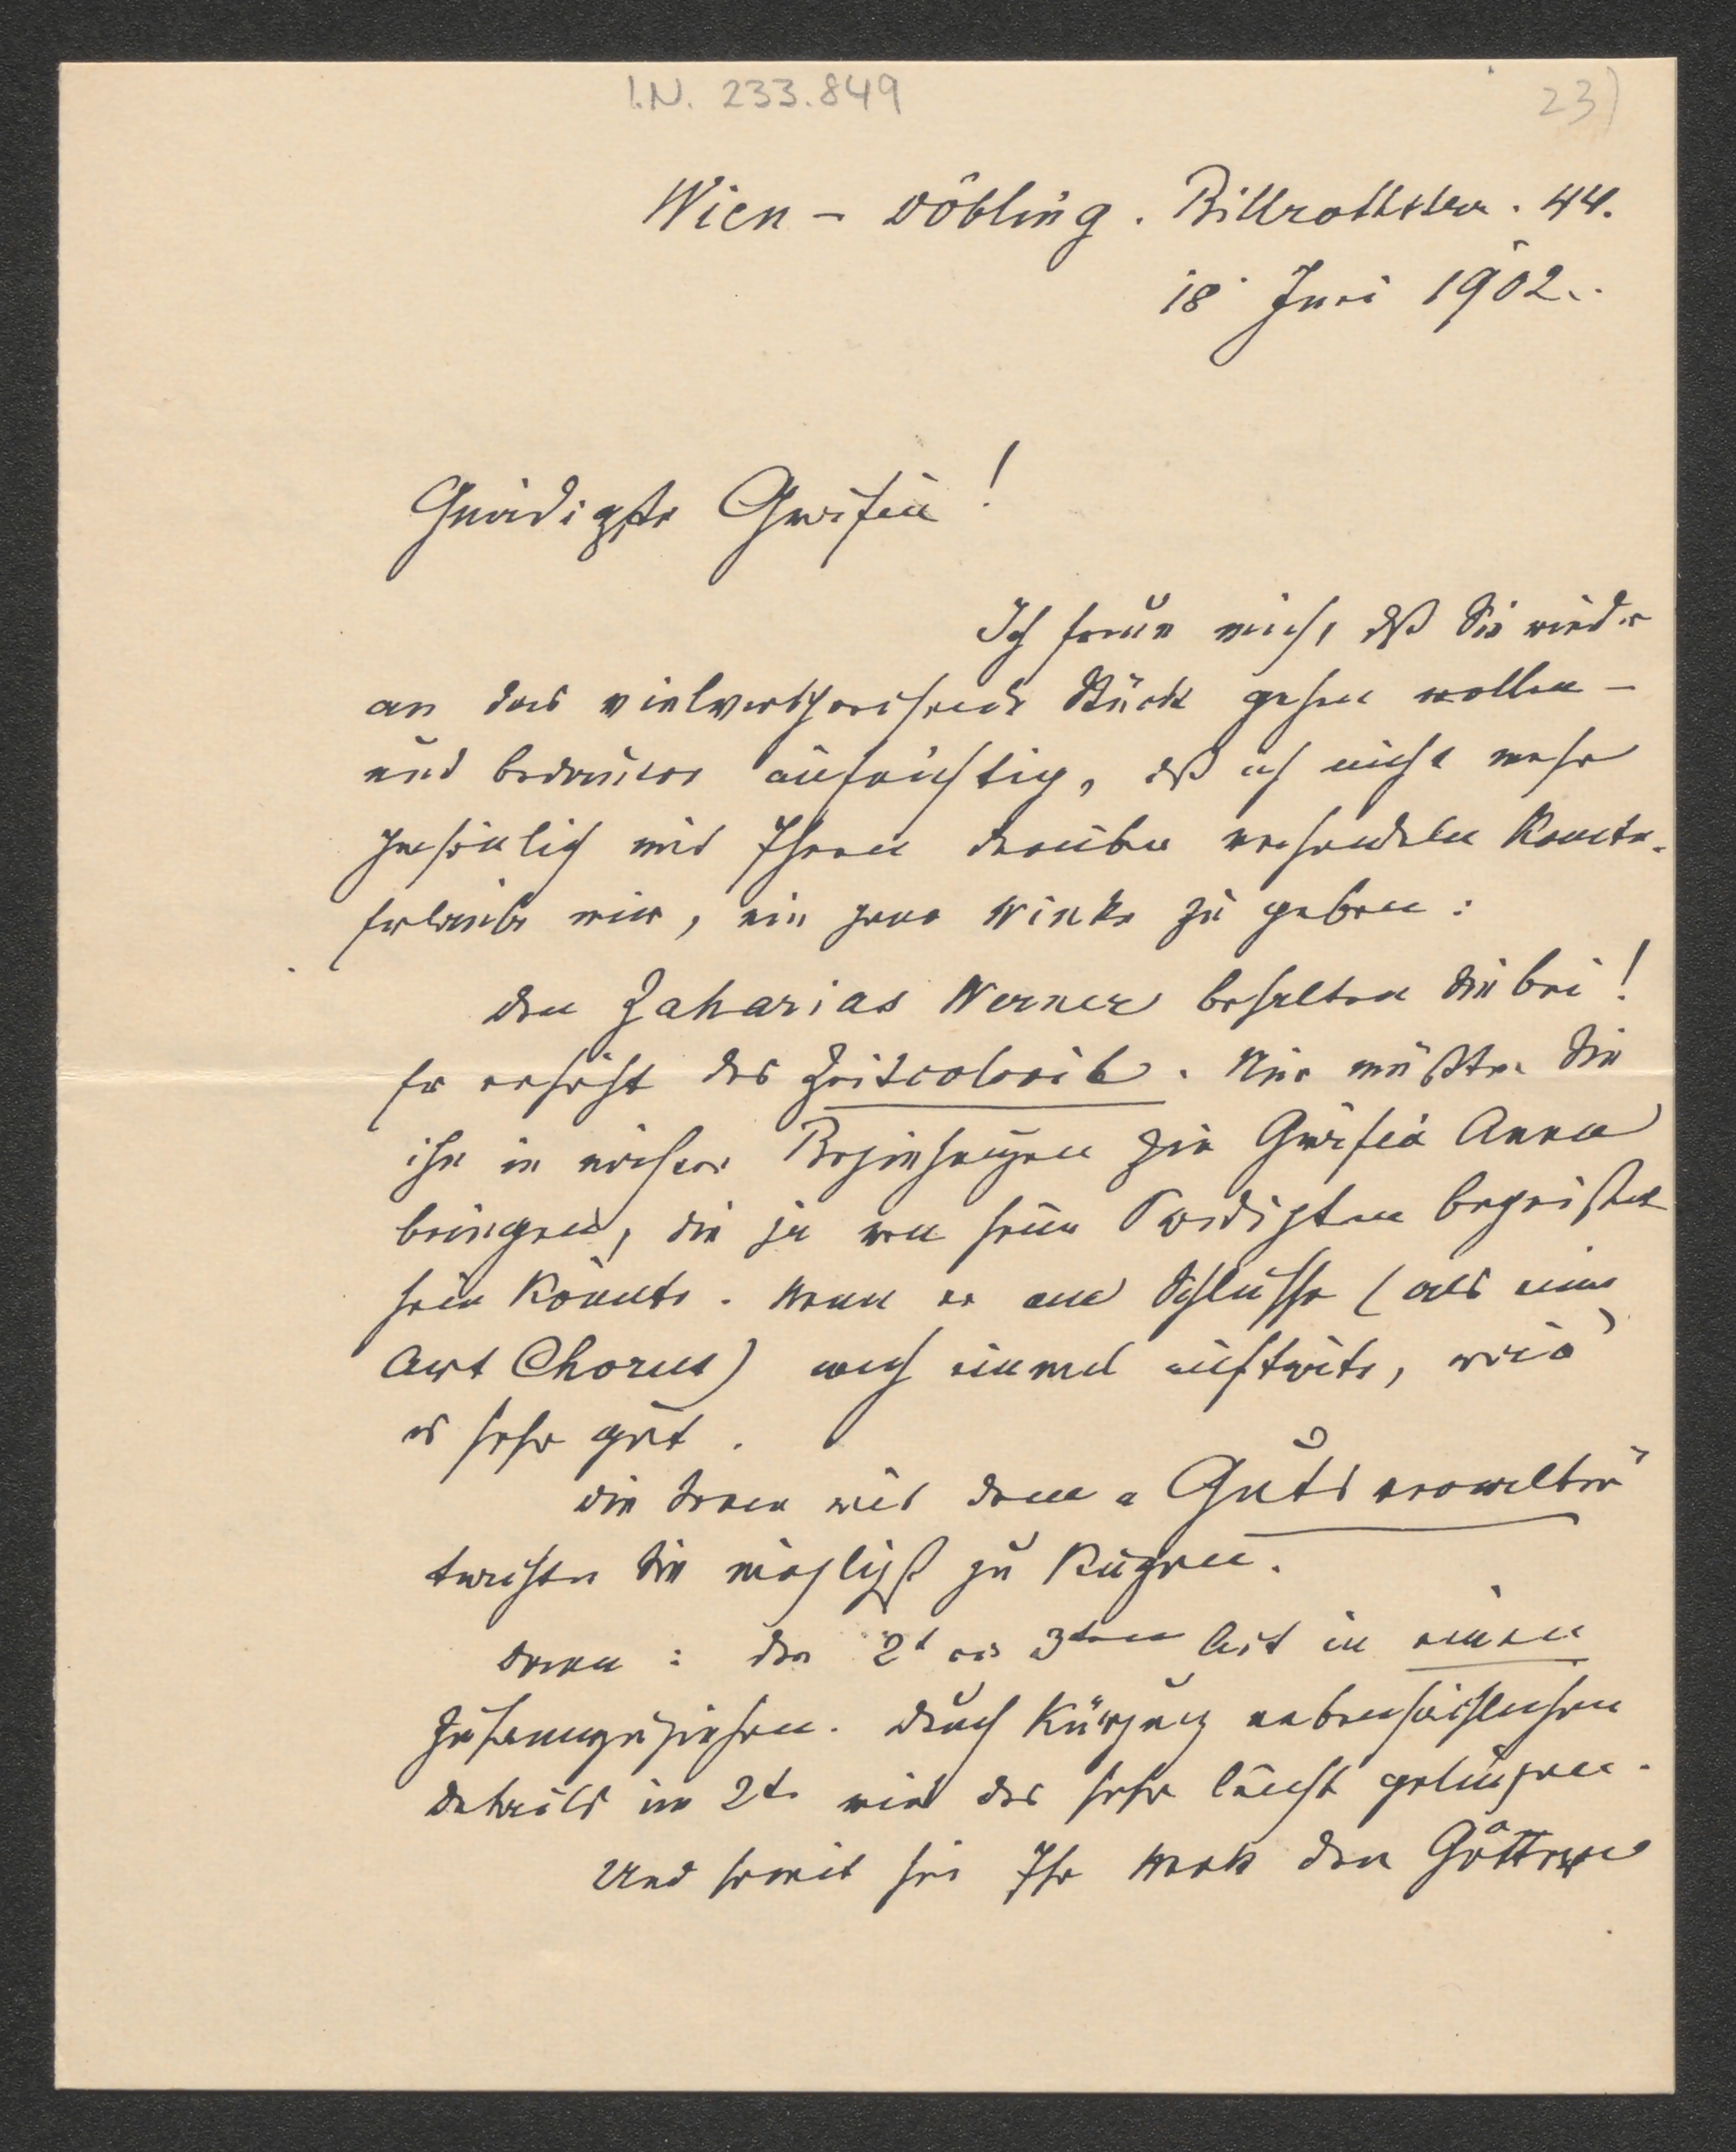 I.N. 233.849
23)
Wien – Döbling. Billrothstr. 44.
18 Juni 1902.
Gnädigste Gräfin!
Ich freue mich, dß Sie wieder
an das vielversprechende Stück gehen wollen –
und bedauere aufrichtig, dß ich nicht mehr
persönlich mit Ihnen darüber verhandeln konnte.
Erlaube mir, ein paar Winke zu geben:
Den Zaharias Werner behalten Sie bei!
Er erhöht das Zeitcolorit. Nur müßten Sie
ihn in nähere Beziehungen zur Gräfin Anna
bringen, die ja von seinen Predigten begeistert
sein könnte. Wenn er am Schlusse (als eine
Art Chorus) noch einmal aufträte, wäre
es sehr gut.
Die Scenen mit dem „Gutsverwalter"
trachten Sie möglichst zu kürzen.
Dann: den 2t und 3ten Act in einen
zusammenzuziehen. Durch Kürzung nebensächlicher
Details im 2t. wird das sehr leicht gelingen.
Und somit sei Ihr Werk den Göttern